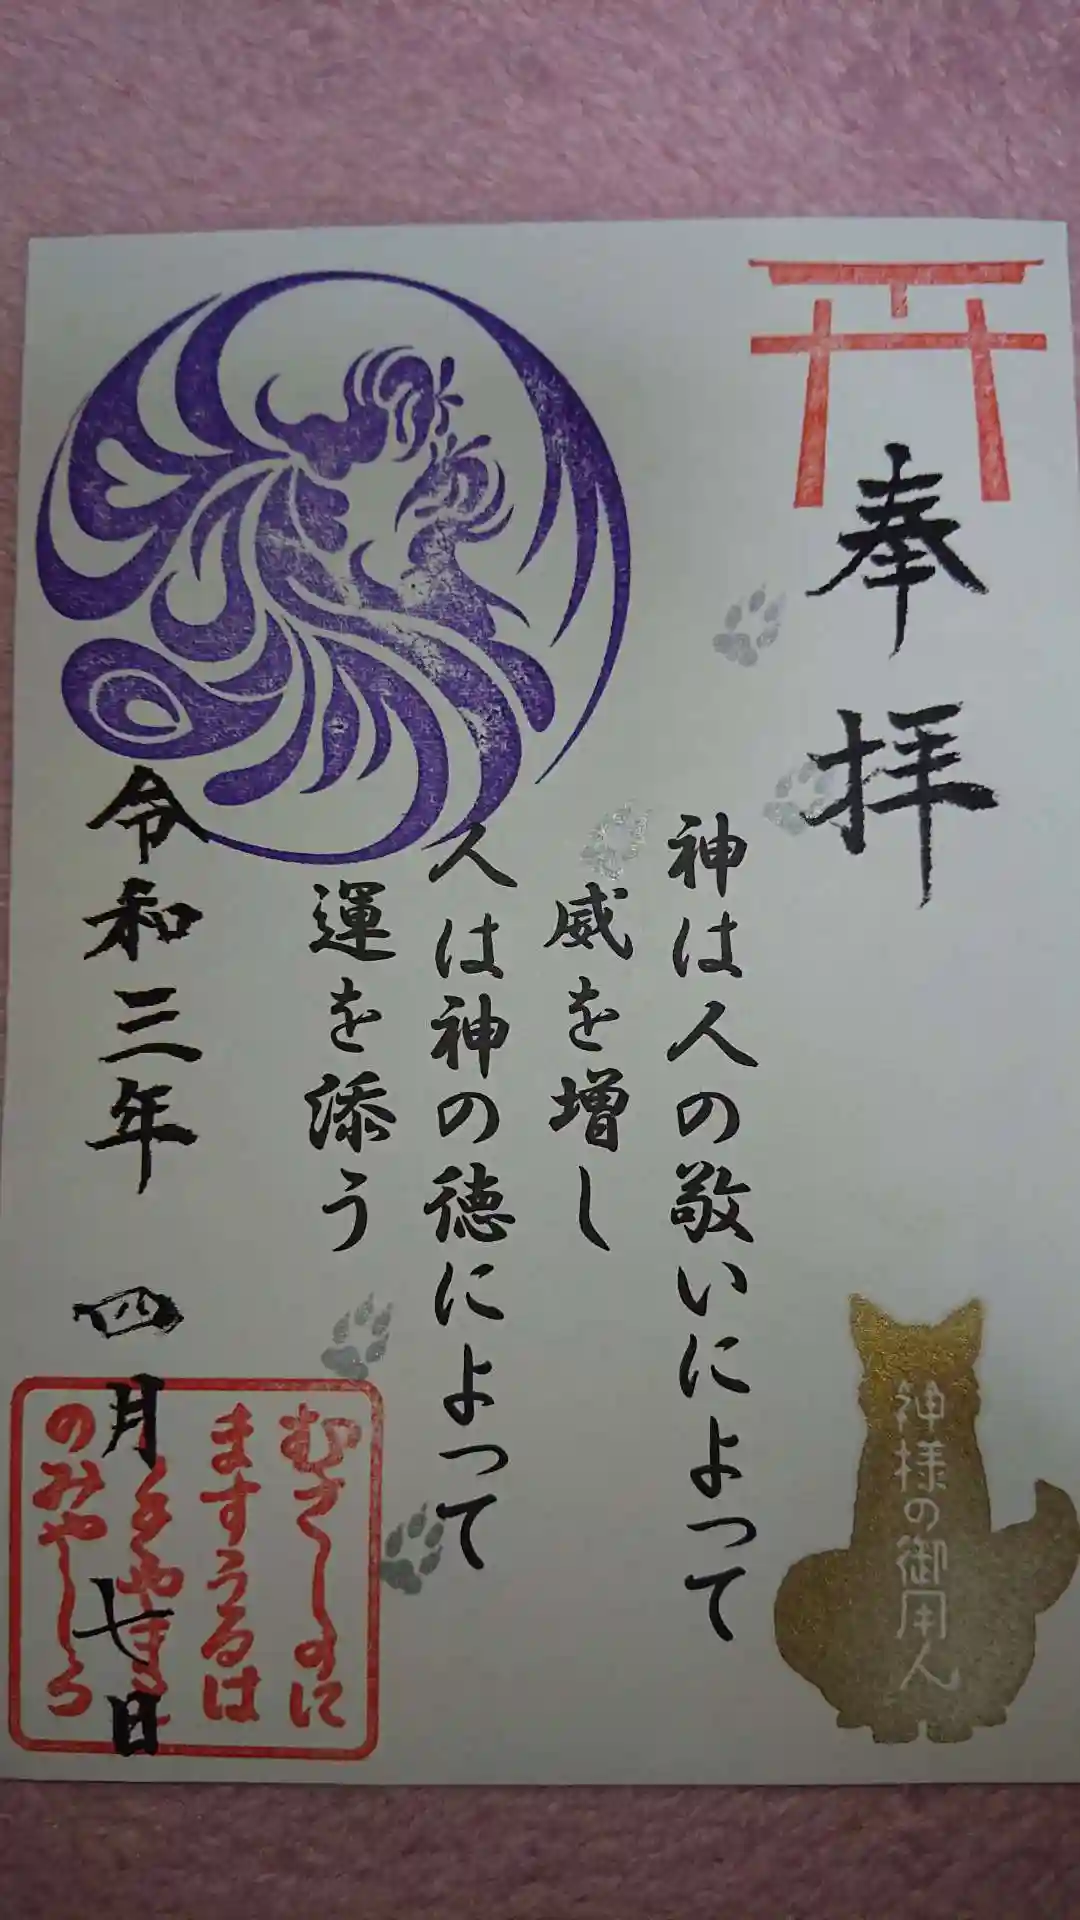 奉拝
神は人の敬いによって
威を増し
人は神の徳によって
運を添う
令和三年 四月 七日
神様の御用人
むさしのに
ますうるは
のみやしろ